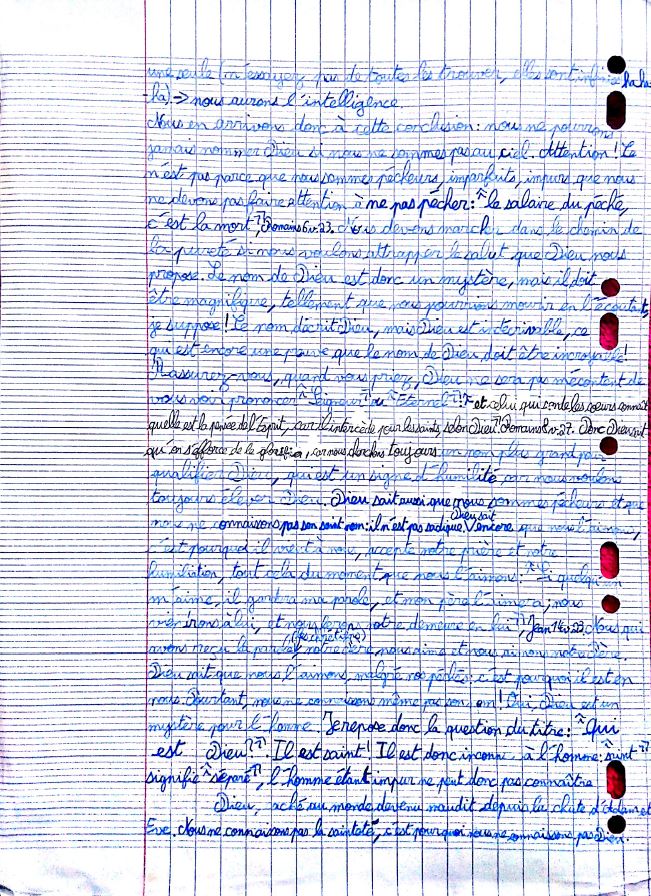 une seule (n'essayez pas de toutes les trouver, elles sont infinies haha
-ha) => nous aurons l'intelligence
Nous en arrivons donc à cette conclusion : nous ne pourrons
jamais nommer Dieu si nous ne sommes pas au ciel. Attention ! Ce
n'est pas parce que nous sommes pécheurs, imparfaits, impurs que nous
ne devons pas faire attention à ne pas pécher : "le salaire du péché,
c'est la mort", Romains 6 v. 23. Nous devons marcher dans le chemin de
la pureté si nous voulons attraper le salut que Dieu nous
propose. Le nom de Dieu est donc un mystère, mais il doit
être magnifique, tellement que nous pourrions mourir en l'écoutant,
je suppose ! Le nom décrit Dieu, mais Dieu est indécrivable, ce
qui est encore une preuve que le nom de Dieu doit être incroyable !
Rassurez-vous, quand vous priez, Dieu ne sera pas mécontent de
vous voir prononcer "Seigneur" ou "Eternel" ! "et celui qui sonde les coeurs connaît
quelle est la pensée de l'Esprit, car il intercède pour les saints, selon Dieu". Romains 8 v. 27. Donc Dieu sait
qu'on s'efforce de le glorifier, car nous cherchons toujours un nom plus grand pour
qualifier Dieu, qui est un signe d'humilité, car nous voulons
toujours élever Dieu. Dieu sait aussi que nous sommes pécheurs et que
nous ne connaissons pas son saint nom : il n'est pas sadique. Dieu sait encore que nous l'aimons,
c'est pourquoi il vient à nous, accepte notre prière et notre
humiliation, tout cela du moment que nous l'aimons : "Si quelqu'un
m'aime, il gardera ma parole, et mon père l'aimera ; nous
viendrons à lui, et nous ferons notre demeure en lui" Jean 14 v. 23. Nous qui
avons reçu la parole (les chrétiens) notre père, nous aime et nous aimons notre père.
Dieu sait que nous l'aimons, malgré nos péchés : c'est pourquoi il est en
nous. Pourtant, nous ne connaissons même pas son nom ! Oui, Dieu est un
mystère pour l'homme. Je repose donc la question du titre : "Qui
est Dieu ?" Il est saint ! Il est donc inconnu à l'homme : "saint"
signifie "séparé", l'homme étant impur ne peut donc pas connaître
Dieu, caché au monde devenu maudit depuis la chute d'Adam et
Eve. Nous ne connaissons pas la sainteté, c'est pourquoi nous ne connaissons pas Dieu.